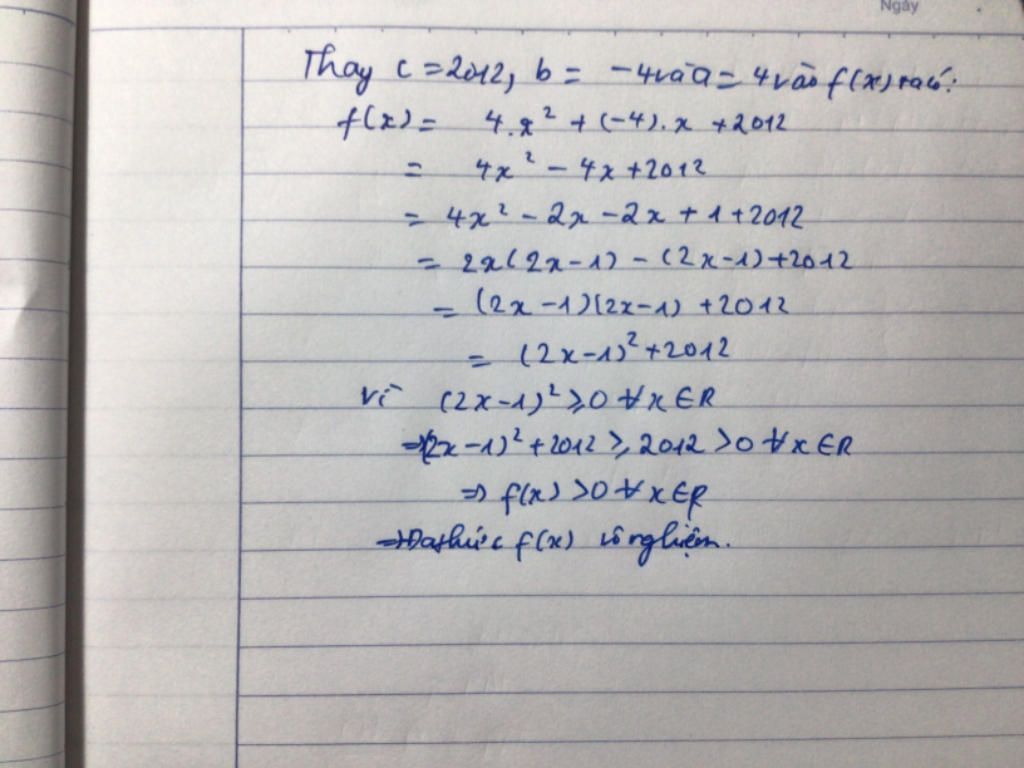 Ngày
Thay c = 2012, b = -4 và a = 4 vào f(x) ta có:
f(x) = 4.x² + (-4).x + 2012
= 4x² - 4x + 2012
= 4x² - 2x - 2x + 1 + 2012
= 2x(2x-1) - (2x-1) + 2012
= (2x-1)(2x-1) + 2012
= (2x-1)² + 2012
Vì (2x-1)² ≥ 0 ∀x ∈ R
⇒ (2x-1)² + 2012 ≥ 2012 > 0 ∀x ∈ R
⇒ f(x) > 0 ∀x ∈ R
⇒ Đa thức f(x) vô nghiệm.